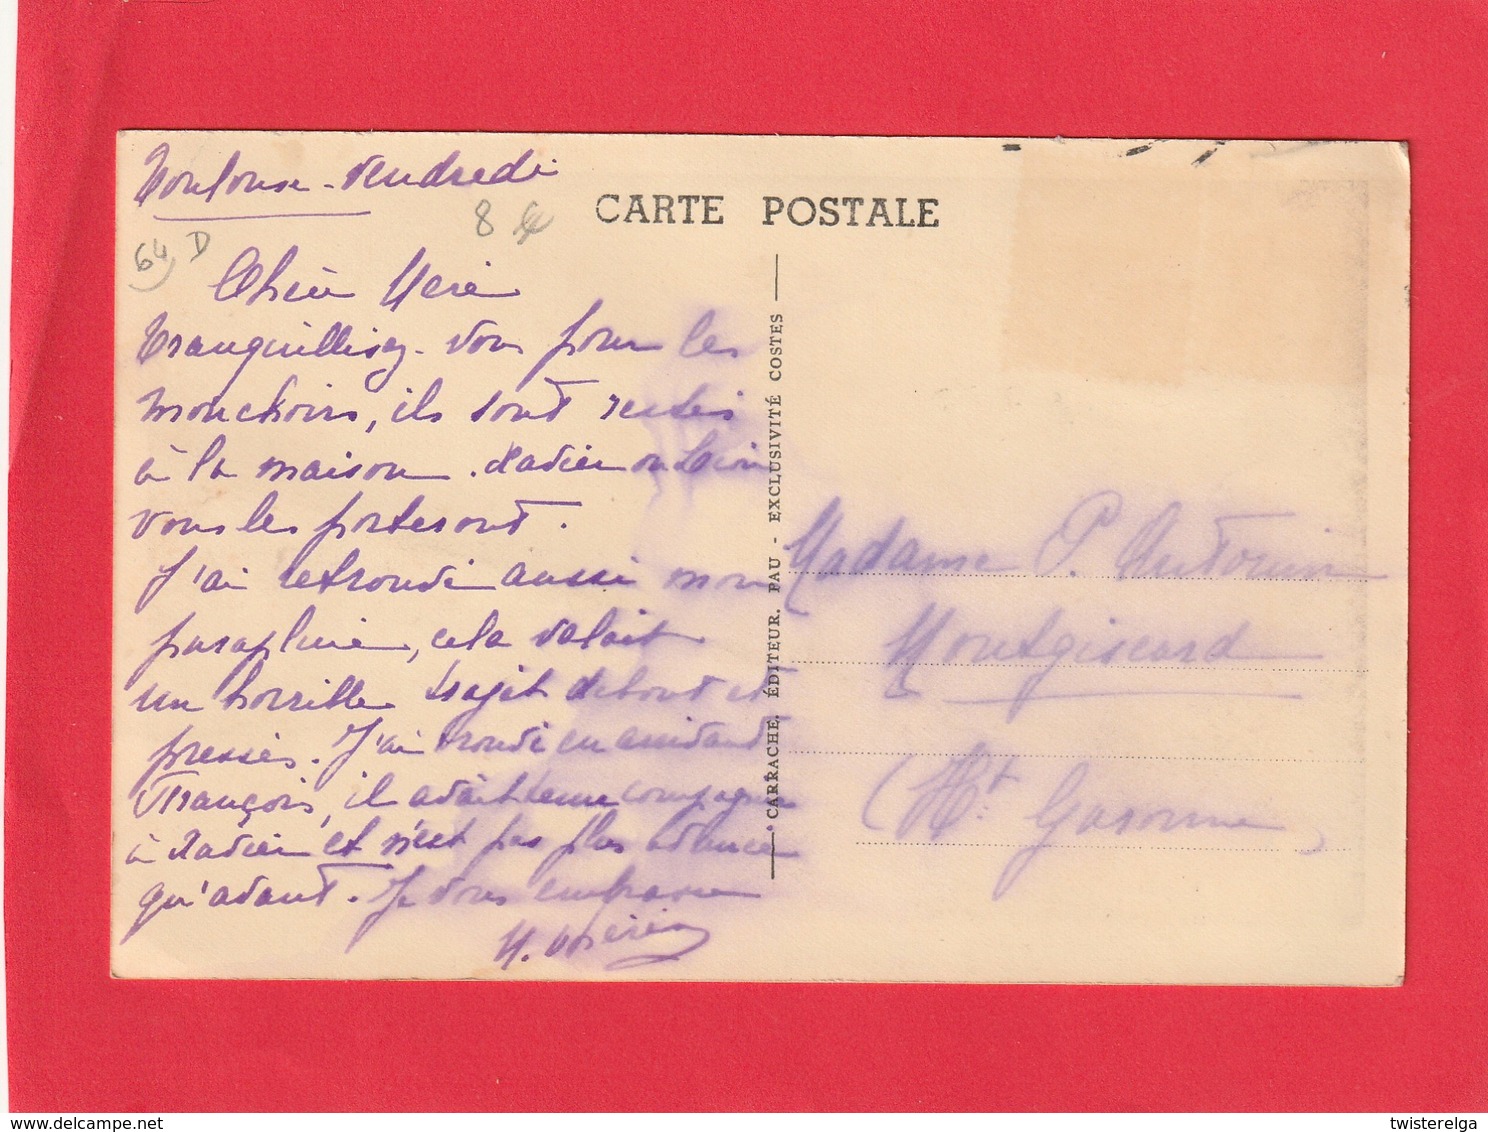 Toulouse - Vendredi
CARTE POSTALE
8 €
64 D
Chère Mère
Tranquillisez-vous pour les
mouchoirs, ils sont restés
à la maison. Xavier ou
vous les porteront.
J'ai retrouvé aussi mon
parapluie, cela valait
un horrible trajet debout et
pressés. J'ai trouvé en arrivant
François, il avait tenu compagnie
à Xavier et n'est pas plus avancé
qu'avant. Je vous embrasse
CARRACHE, ÉDITEUR. PAU - EXCLUSIVITÉ COSTES
Madame P. Antonin
Montgiscard
(Hte Garonne)
delcampe.net
twisterelga